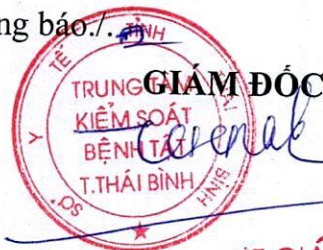 ng báo./.
GIÁM ĐỐC
SỞ Y TẾ TỈNH THÁI BÌNH
TRUNG TÂM
KIỂM SOÁT
BỆNH TẬT
T.THÁI BÌNH